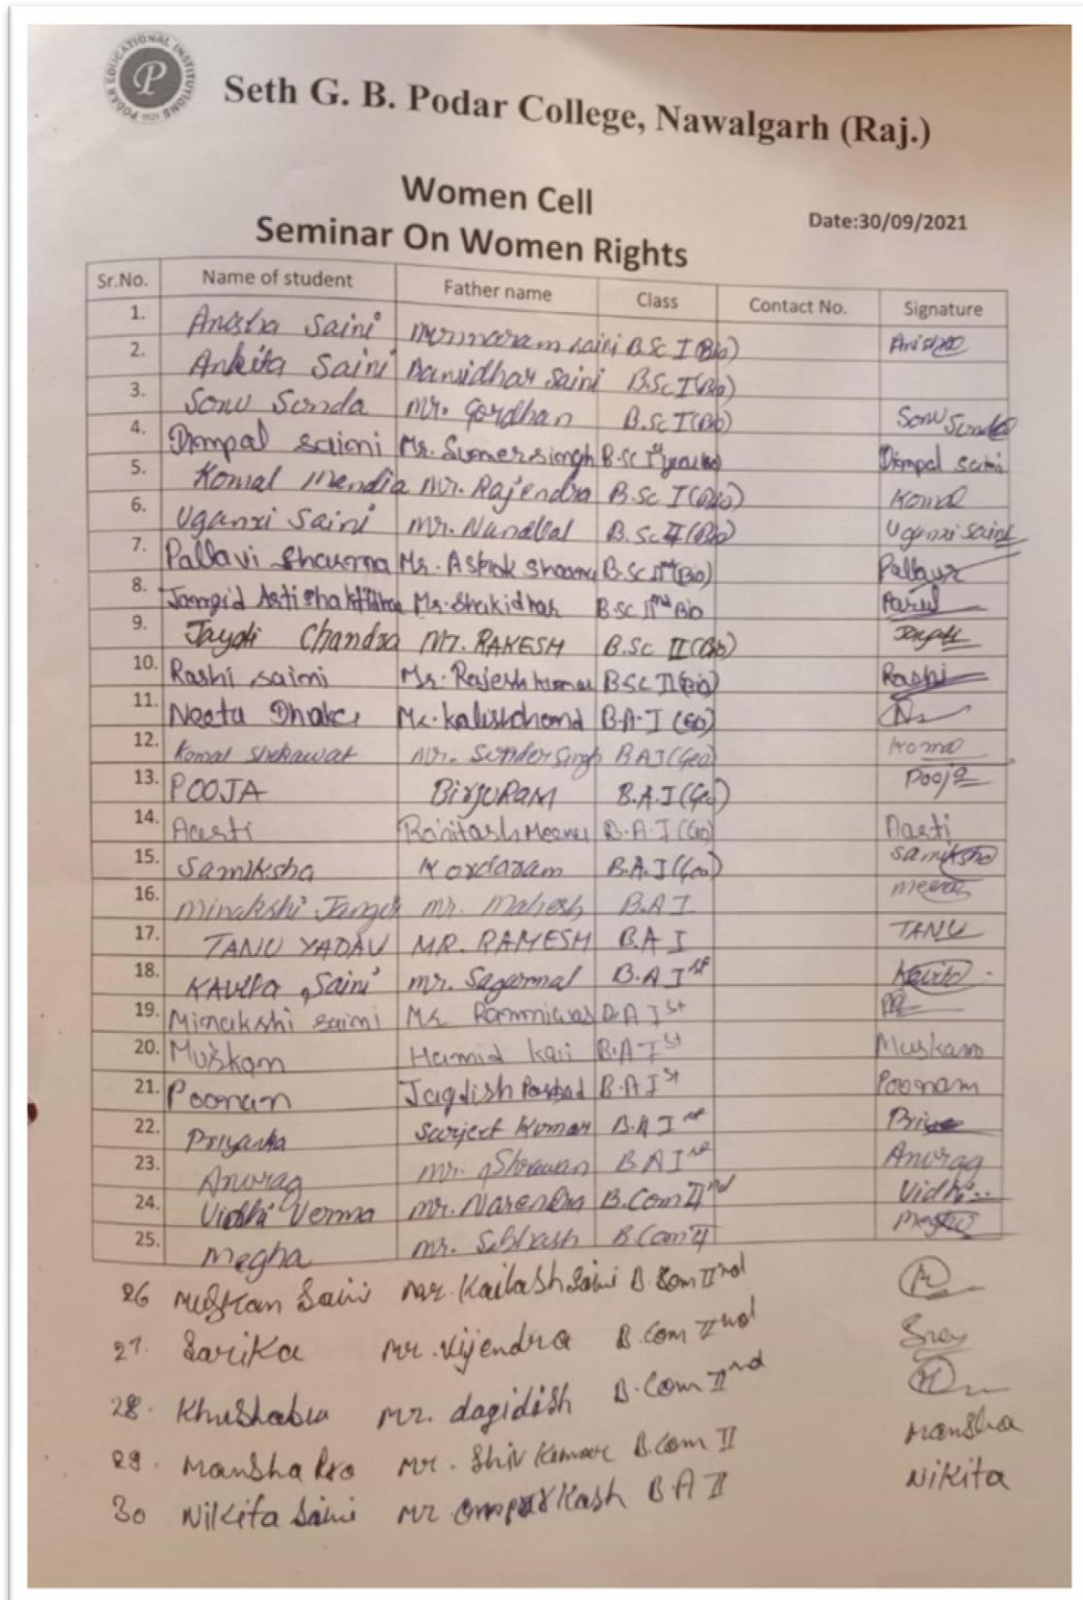 PODAR EDUCATIONAL INSTITUTIONS
P
1921
Seth G. B. Podar College, Nawalgarh (Raj.)
Women Cell
Date:30/09/2021
Seminar On Women Rights
Sr.No. Name of student Father name Class Contact No. Signature
1. Anisha Saini saini B.Sc I (Bio)
2. Ankita Saini Bansidhar Saini B.Sc I (Bio)
3. Sonu Sunda Mr. Gordhan B.Sc I (Bio) Sonu Sunda
4. Dimpal saini Mr. Sumersingh B.Sc Ist Dimpal saini
5. Komal Mr. Rajendra B.Sc I (Bio) Komal
6. Uganxi Saini Mr. Nandlal B.Sc II (Bio) Uganxi Saini
7. Pallavi Sharma Mr. Ashok B.Sc (Bio)
8. Jangid Mr. Shakidhar B.Sc IInd Bio Parul
9. Chandra Mr. RAKESH B.Sc II (Bio)
10. Rashi saini Mr. Rajesh kumar B.Sc II (Bio) Rashi
11. Neeta B.A.I (Geo)
12. Komal Shekawat Mr. Sunder Singh B A I (Geo) Komal
13. POOJA BirjuRam B.A.I (Geo) Pooja
14. Aasti B.A.I (Geo) Aasti
15. Samiksha Kordaram B.A.I (Geo) Samiksha
16. Minakshi Jangir mr. Mahesh B.A I
17. TANU YADAV MR. RAMESH B.A I TANU
18. Kavita Saini mr. Sagarmal B.A Ist Kavita
19. Minakshi saini B.A Ist
20. Muskan Hamid B.A Ist Muskan
21. Poonam Jagdish B.A Ist Poonam
22. Priyanka Surjeet Kumar B.A Ist
23. Anurag mr. Shrawan B.A Ist Anurag
24. Vidhi Verma mr. Narendra B.Com IInd Vidhi..
25. Megha mr. Subhash B.Com II Megha
26 Muskan Saini mr. Kailash Saini B.Com IInd
27. Sarika Mr. Vijendra B.Com IInd
28. Khushabu Mr. dagidish B.Com IInd
29. Mansha Mr. Shiv Kumar B.Com II Mansha
30 Nikita Saini Mr omparkash B A II Nikita